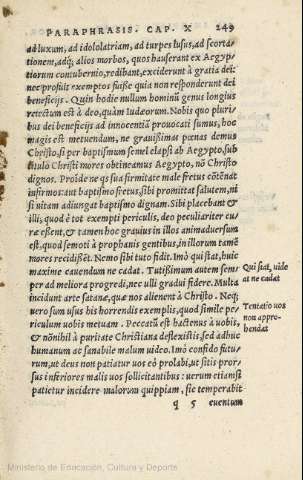 PARAPHRASIS. CAP. X 249
ad luxum, ad idololatriam, ad turpes lusus, ad scorta-
tionem, adq; alios morbos, quos hauserant ex Aegyp
tiorum contubernio, redibant, exciderunt à gratia dei:
nec profuit exemptos fuisse quia non responderunt dei
beneficijs. Quin hodie nullum hominũ genus longius
reiectum est à deo, quàm Iudæorum. Nobis quo pluri-
bus dei beneficijs ad innocentiã prouocati sumus, hoc
magis est metuendum, ne grauissimas pœnas demus
Christo, si per baptismum semel elapsi ab Aegypto, sub
titulo Christi mores obtineamus Aegypto, nõ Christo
dignos. Proide ne qs sua firmitate male fretus cõtēnat
infirmos: aut baptismo fretus, sibi promittat salutem, ni
si uitam adiungat baptismo dignam. Sibi placebant &
illi, quod è tot exempti periculis, deo peculiariter cu-
ræ essent, & tamen hoc grauius in illos animaduersum
est, quod semoti à prophanis gentibus, in illorum tamē
mores recidisset. Nemo sibi tuto fidit. Imò qui stat, huic
maxime cauendum ne cadat. Tutissimum autem sem-
per ad meliora progredi, nec ulli gradui fidere. Multa
incidunt arte satanæ, quæ nos alienent à Christo. Neq;
uero sum usus his horrendis exemplis, quod simile pe-
riculum uobis metuam. Peccatũ est hactenus à uobis,
& nõnihil à puritate Christiana deflexistis, sed adhuc
humanum ac sanabile malum uideo. Imò confido futu-
rum, ut deus non patiatur uos eò prolabi, ut sitis pror-
sus inferiores malis uos sollicitantibus: uerum etiamsi
patietur incidere malorum quippiam, sic temperabit
q 5 euentum
Qui stat, uide
at ne cadat
Tentatio uos
non appre-
hendat
Ministerio de Educación, Cultura y Deporte